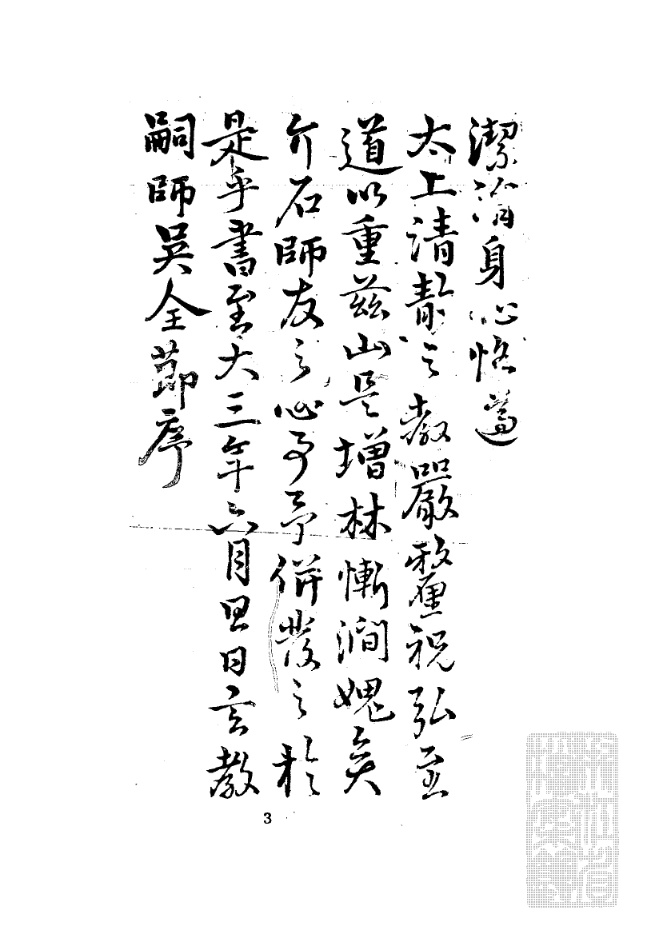 潔治身心恪遵
太上清靜之教嚴釐祝弘至
道以重茲山是增林慚澗媿矣
介石師友之心乎予併發之於
是乎書至大三年六月旦日玄教
嗣師吳全節序
3